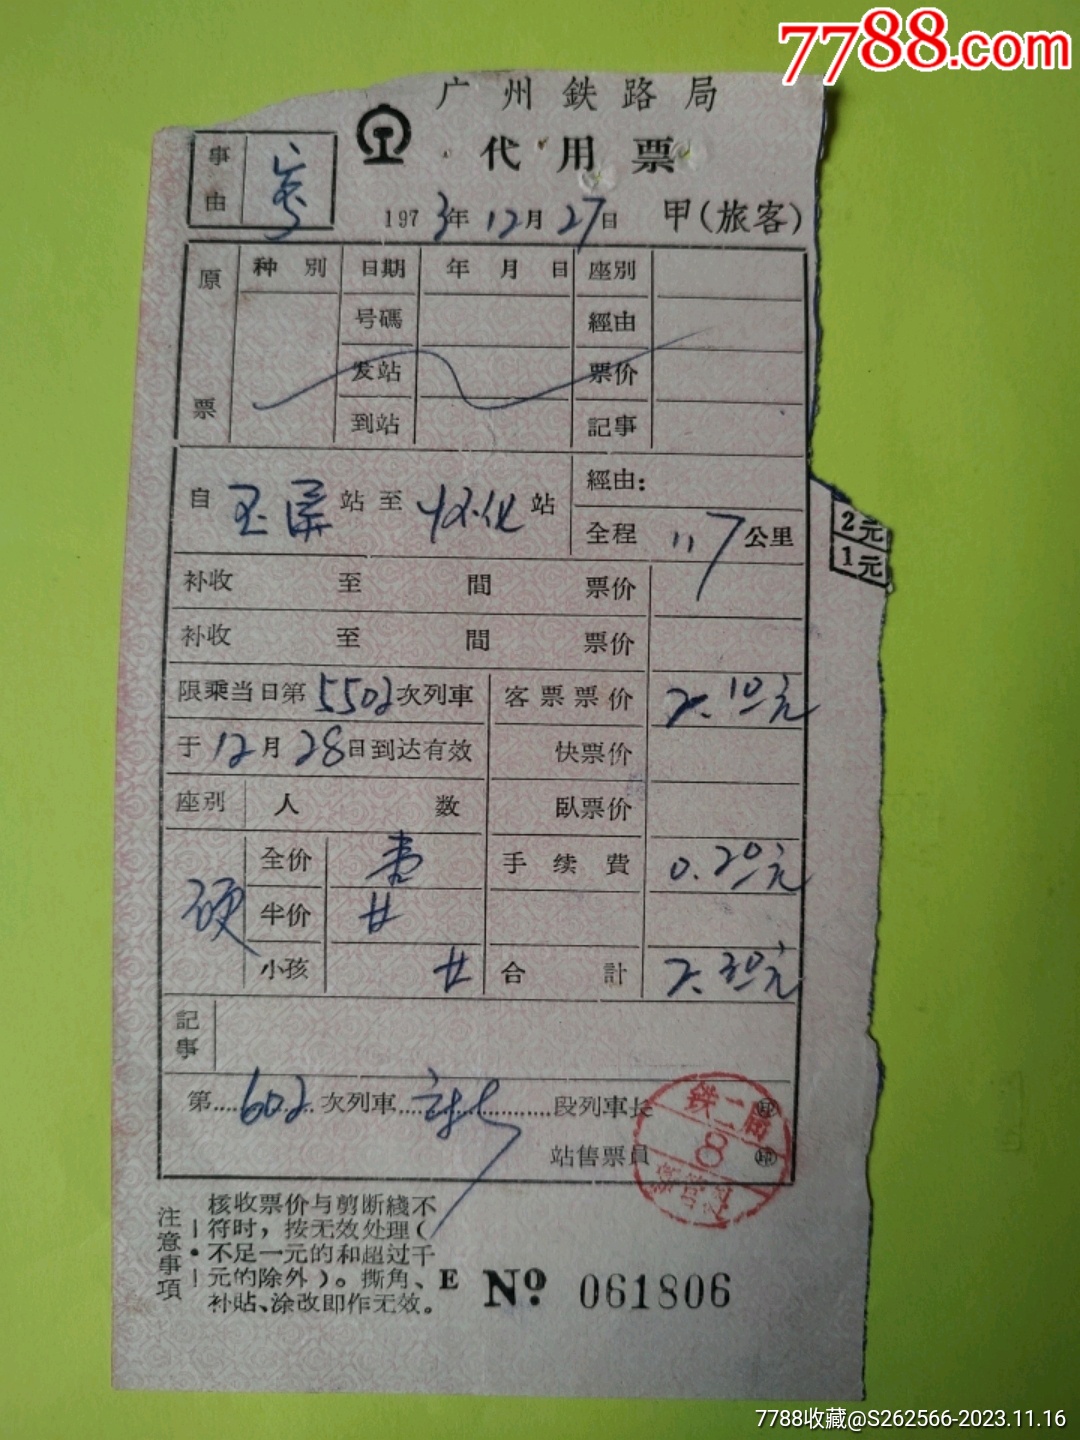 7788.com
广州鉄路局
代用票
事由
1973年12月27日 甲(旅客)
原票 种別 日期 年月日 座別
号碼 經由
发站 票价
到站 記事
自玉屏站至怀化站 經由:
全程 117公里
2元
1元
补收 至 間 票价
补收 至 間 票价
限乘当日第5502次列車 客票票价 2.10元
于12月28日到达有效 快票价
座別 人数 臥票价
硬 全价 壹 手续費 0.20元
半价 廿
小孩 廿 合計 2.30元
記事
第602次列車 段列車长
站售票員
鉄二局
注意事項
核收票价与剪断綫不
符时，按无效处理(
不足一元的和超过千
元的除外)。撕角、
补貼、涂改即作无效。
E No 061806
7788收藏@S262566-2023.11.16